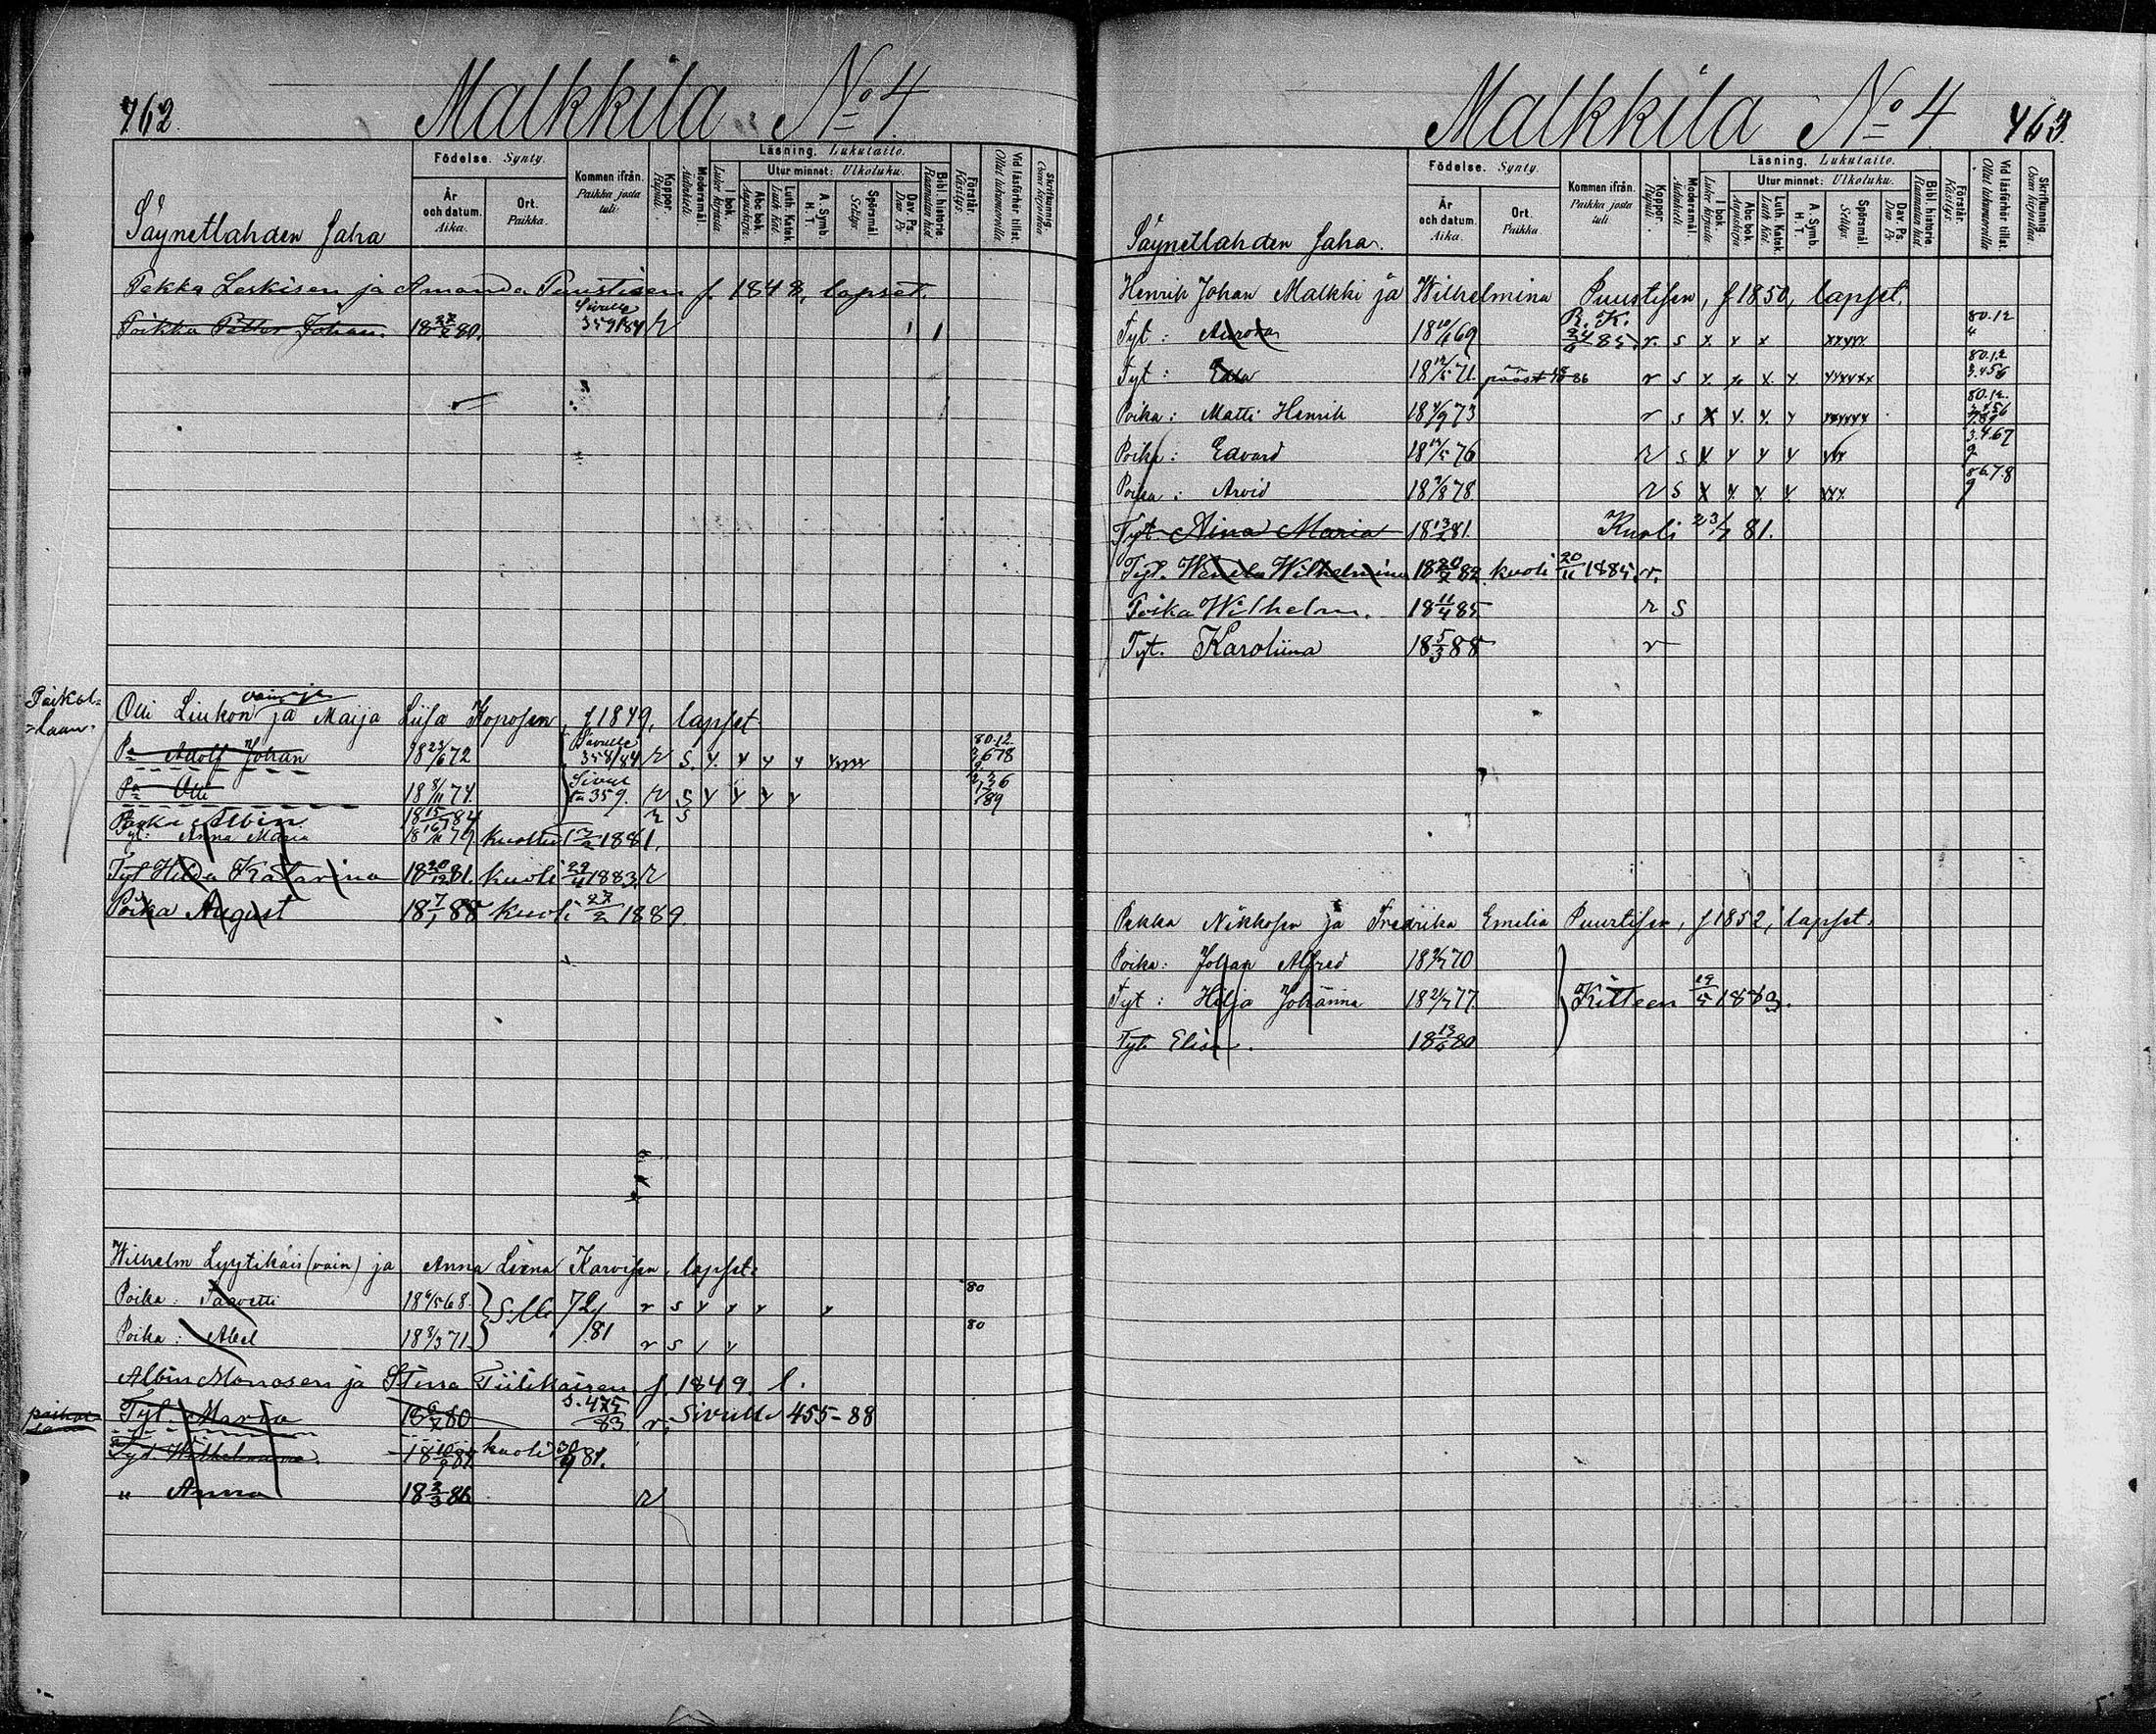 762.
Malkkila No 4.
Säynetlahden Saha
Födelse. Synty.
År och datum. Aika.
Ort. Paikka.
Kommen ifrån. Paikka josta tuli:
Koppor. Rupuli.
Modersmål. Äidinkieli.
Läsning. Lukutaito.
I bok. Lukee kirjasta
Utur minnet: Ulkoluku.
Abc bok. Aapiskirja.
Luth. Katek. Luth. Kat.
A. Symb. H. T.
Spörsmål. Selitys.
Dav. Ps. Dav. Ps.
Bibl. historie. Raamatun hist.
Förstår. Käsitys.
Vid läsförhör tillst. Ollut lukuvuoroilla.
Skrifkunnig. Osaa kirjoittaa
Pekka Leskisen ja Amanda Puustisen f. 1848, lapset.
Poikka Petter Johan. 18 27/5 80. Sivulle 359/84 r
Poikal-
-laan.
Olli Liukon vainaja ja Maija Liisa Koposen, f 1849, lapset
Pa Adolf Johan 18 23/6 72 Sivulle 358/84 r s. y. y y y yyyy 80.12. 3,678 9.
Pa Olli 18 8/11 74. Sivul la 359. r s y y y y 789
Poika Albin 18 15/ 84 r s
Tyt: Anna Maria 18 16/11 79 kuollut 1881.
Tyt Hilda Katarina 18 20/12 81. kuoli 29/4 1883. r
Poika August 18 7/1 88 kuoli 27/2 1889.
Wilhelm Lyytikäis (vain) ja Anna Liena Karvisen, lapset:
Poika: Taavetti 18 6/5 68. S:lle 72/81 r s y y y y 80
Poika: Abel 18 8/3 71. r s y y 80
Albin Monosen ja Stina Tiilikaisen f. 1849. l.
Tyt. Maria 80 s. 475/83 r. Sivulle 455-88
Tyt. Wilhelmiina. kuoli 30/9 81.
" Anna 18 3/3 86 r
Malkkila No 4.
463.
Säynetlahden Saha.
Födelse. Synty.
År och datum. Aika.
Ort. Paikka.
Kommen ifrån. Paikka josta tuli
Koppor. Rupuli.
Modersmål. Äidinkieli.
Läsning. Lukutaito.
I bok. Lukee kirjasta
Utur minnet: Ulkoluku.
Abc bok. Aapiskirja
Luth. Katek. Luth. Kat.
A. Symb. H. T.
Spörsmål. Selitys.
Dav. Ps. Dav. Ps.
Bibl. historie Raamatun hist.
Förstår. Käsitys.
Vid läsförhör tillst. Ollut lukuvuoroilla
Skrifkunnig. Osaa kirjoittaa.
Henrik Johan Malkki ja Wilhelmina Puustisen, f 1850, lapset.
Tyt: Aurora 18 10/1 69 R. K. 24/6 85. r. s x. x x xxxxx 80.12 4
Tyt: Edla 18 12/5 71. pääst 86 r s y. y. x. y. yyyyyy 80.12 3.456
Poika: Matti Henrik 18 4/9 73 r s x y. y. y 80.12.
Poika: Edvard 18 14/5 76 r s x y y y 3.467 9
Poika: Arvid 18 7/8 78 r s x y. y. y. yyy 8678 9
Tyt Aina Maria 18 13/2 81. Kuoli 23/7 81.
Tyt. Wendla Wilhelmina 18 20/7 82. kuoli 20/11 1885. r.
Poika Wilhelm. 18 11/4 85 r s
Tyt. Karoliina 18 5/3 88 r
Pekka Nikkosen ja Fredrika Emelia Puustisen, f 1852, lapset.
Poika: Johan Alfred 70
Tyt: Hilja Johanna 18 2/7 77. Kitteen 19/5 1883.
Tyt. Elisa. 18 13/6 80